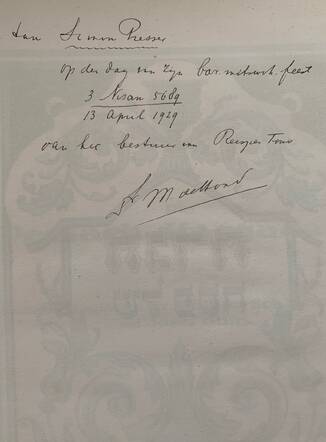 Aan Simon Presser
op den dag van zijn bar. mitswah. feest
3 Nisan 5689
13 April 1929
van het bestuur van